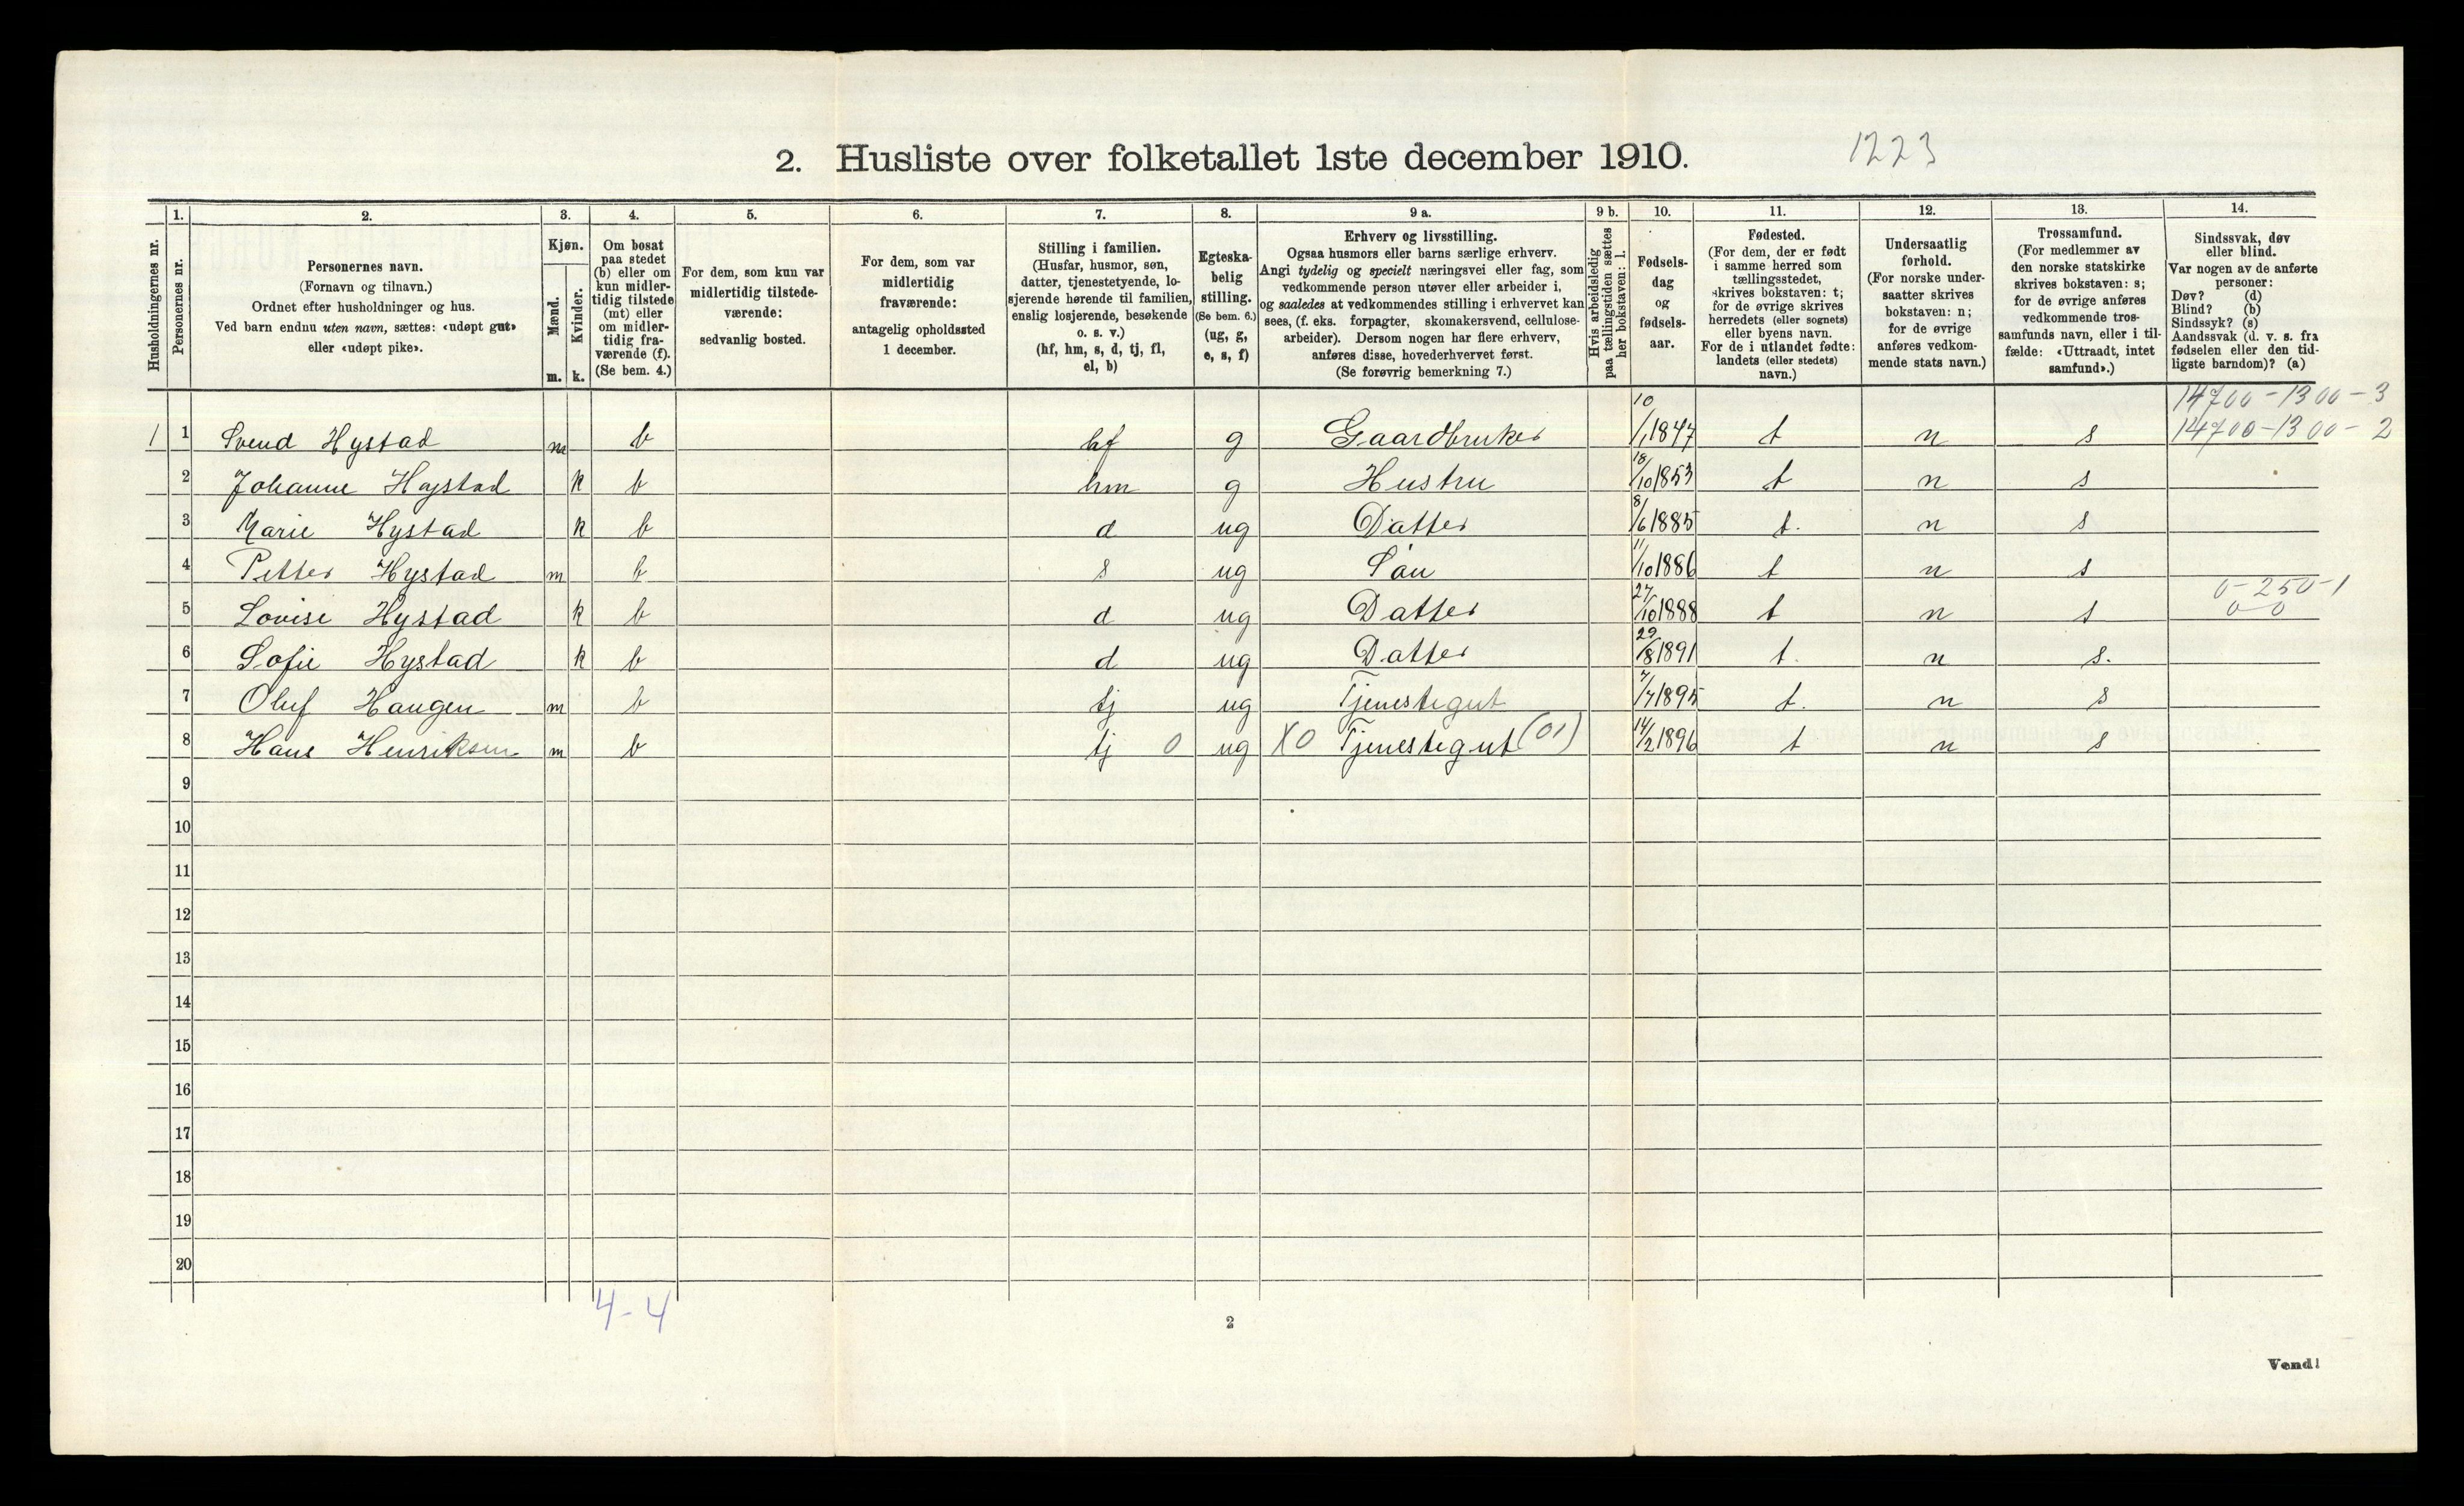 2. Husliste over folketallet 1ste december 1910. 1223
Husholdningernes nr.
1. Personernes nr.
2. Personernes navn. (Fornavn og tilnavn.) Ordnet efter husholdninger og hus. Ved barn endnu uten navn, sættes: «udøpt gut» eller «udøpt pike».
3. Kjøn. Mænd. m. Kvinder. k.
4. Om bosat paa stedet (b) eller om kun midlertidig tilstede (mt) eller om midlertidig fraværende (f). (Se bem. 4.)
5. For dem, som kun var midlertidig tilstedeværende: sedvanlig bosted.
6. For dem, som var midlertidig fraværende: antagelig opholdssted 1 december.
7. Stilling i familien. (Husfar, husmor, søn, datter, tjenestetyende, losjerende hørende til familien, enslig losjerende, besøkende o. s. v.) (hf, hm, s, d, tj, fl, el, b)
8. Egteskabelig stilling. (Se bem. 6.) (ug, g, e, s, f)
9 a. Erhverv og livsstilling. Ogsaa husmors eller barns særlige erhverv. Angi tydelig og specielt næringsvei eller fag, som vedkommende person utøver eller arbeider i, og saaledes at vedkommendes stilling i erhvervet kan sees, (f. eks. forpagter, skomakersvend, cellulosearbeider). Dersom nogen har flere erhverv, anføres disse, hovederhvervet først. (Se forøvrig bemerkning 7.)
9 b. Hvis arbeidsledig paa tællingstiden sættes her bokstaven: l.
10. Fødselsdag og fødselsaar.
11. Fødested. (For dem, der er født i samme herred som tællingsstedet, skrives bokstaven: t; for de øvrige skrives herredets (eller sognets) eller byens navn. For de i utlandet fødte: landets (eller stedets) navn.)
12. Undersaatlig forhold. (For norske undersaatter skrives bokstaven: n; for de øvrige anføres vedkommende stats navn.)
13. Trossamfund. (For medlemmer av den norske statskirke skrives bokstaven: s; for de øvrige anføres vedkommende trossamfunds navn, eller i tilfælde: «Uttraadt, intet samfund».)
14. Sindssvak, døv eller blind. Var nogen av de anførte personer: Døv? (d) Blind? (b) Sindssyk? (s) Aandssvak (d. v. s. fra fødselen eller den tidligste barndom)? (a)
14700-1300-3
1 1 Svend Hystad m b hf g Gaardbruker 10/1 1847 t n s 14700-1300-2
2 Johanne Hystad k b hm g Hustru 18/10 1853 t n s
3 Marie Hystad k b d ug Datter 8/6 1885 t. n s
4 Petter Hystad m b s ug Søn 11/10 1886 t n s
0-250-1
5 Lovise Hystad k b d ug Datter 27/10 1888 t n s 0-0
6 Sofie Hystad k b d ug Datter 29/8 1891 t. n s.
7 Oluf Haugen m b tj ug Tjenestegut 7/7 1895 t. n s
8 Hans Henriksen m b tj 0 ug X0 Tjenestegut (01) 14/2 1896 t n s
9
10
11
12
13
14
15
16
17
18
19
20
4-4
2
Vend!